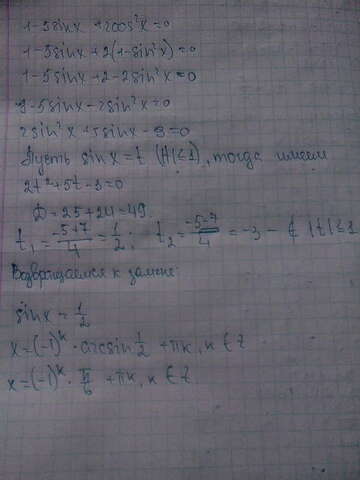 1-5sinx+2cos²x=0
1-5sinx+2(1-sin²x)=0
1-5sinx+2-2sin²x=0
3-5sinx-2sin²x=0
2sin²x+5sinx-3=0
Пусть sinx=t (|t|≤1), тогда имеем
2t²+5t-3=0
D=25+24=49
t₁=(-5+7)/4=1/2; t₂=(-5-7)/4=-3-∉ |t|≤1
Возвращаемся к замене:
sinx=1/2
x=(-1)^k·arcsin 1/2+πk, k∈Z
x=(-1)^k·π/6+πk, k∈Z